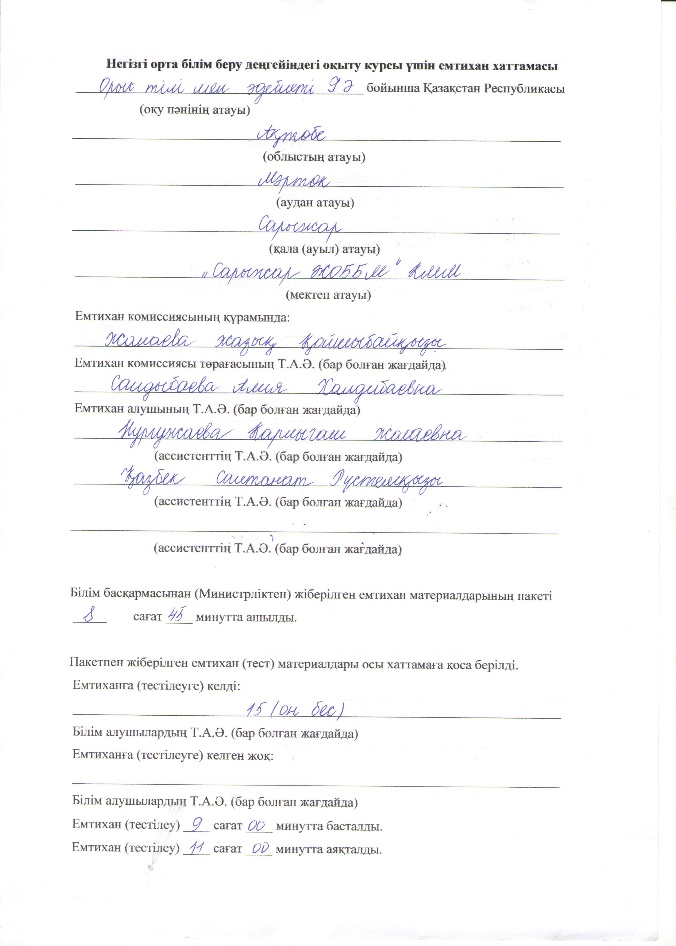 Негізгі орта білім беру деңгейіндегі оқыту курсы үшін емтихан хаттамасы
Орыс тілі мен әдебиеті 9Ә бойынша Қазақстан Республикасы
(оқу пәнінің атауы)
Ақтөбе
(облыстың атауы)
Мәртөк
(аудан атауы)
Сарыжар
(қала (ауыл) атауы)
"Сарыжар ЖОББМ" КММ
(мектеп атауы)
Емтихан комиссиясының құрамында:
Жанаева Қайшыбайқызы
Емтихан комиссиясы төрағасының Т.А.Ә. (бар болған жағдайда)
Сандыбаева Алия
Емтихан алушының Т.А.Ә. (бар болған жағдайда)
Нургужаева Карлыгаш
(ассистенттің Т.А.Ә. (бар болған жағдайда)
Қазбек Салтанат Рүстемқызы
(ассистенттің Т.А.Ә. (бар болған жағдайда)
(ассистенттің Т.А.Ә. (бар болған жағдайда)
Білім басқармасынан (Министрліктен) жіберілген емтихан материалдарының пакеті
8 сағат 45 минутта ашылды.
Пакетпен жіберілген емтихан (тест) материалдары осы хаттамаға қоса берілді.
Емтиханга (тестілеуге) келді:
15 (он бес)
Білім алушылардың Т.А.Ә. (бар болған жағдайда)
Емтиханға (тестілеуге) келген жоқ:
Білім алушылардың Т.А.Ә. (бар болған жағдайда)
Емтихан (тестілеу) 9 сағат 00 минутта басталды.
Емтихан (тестілеу) 11 сағат 00 минутта аяқталды.